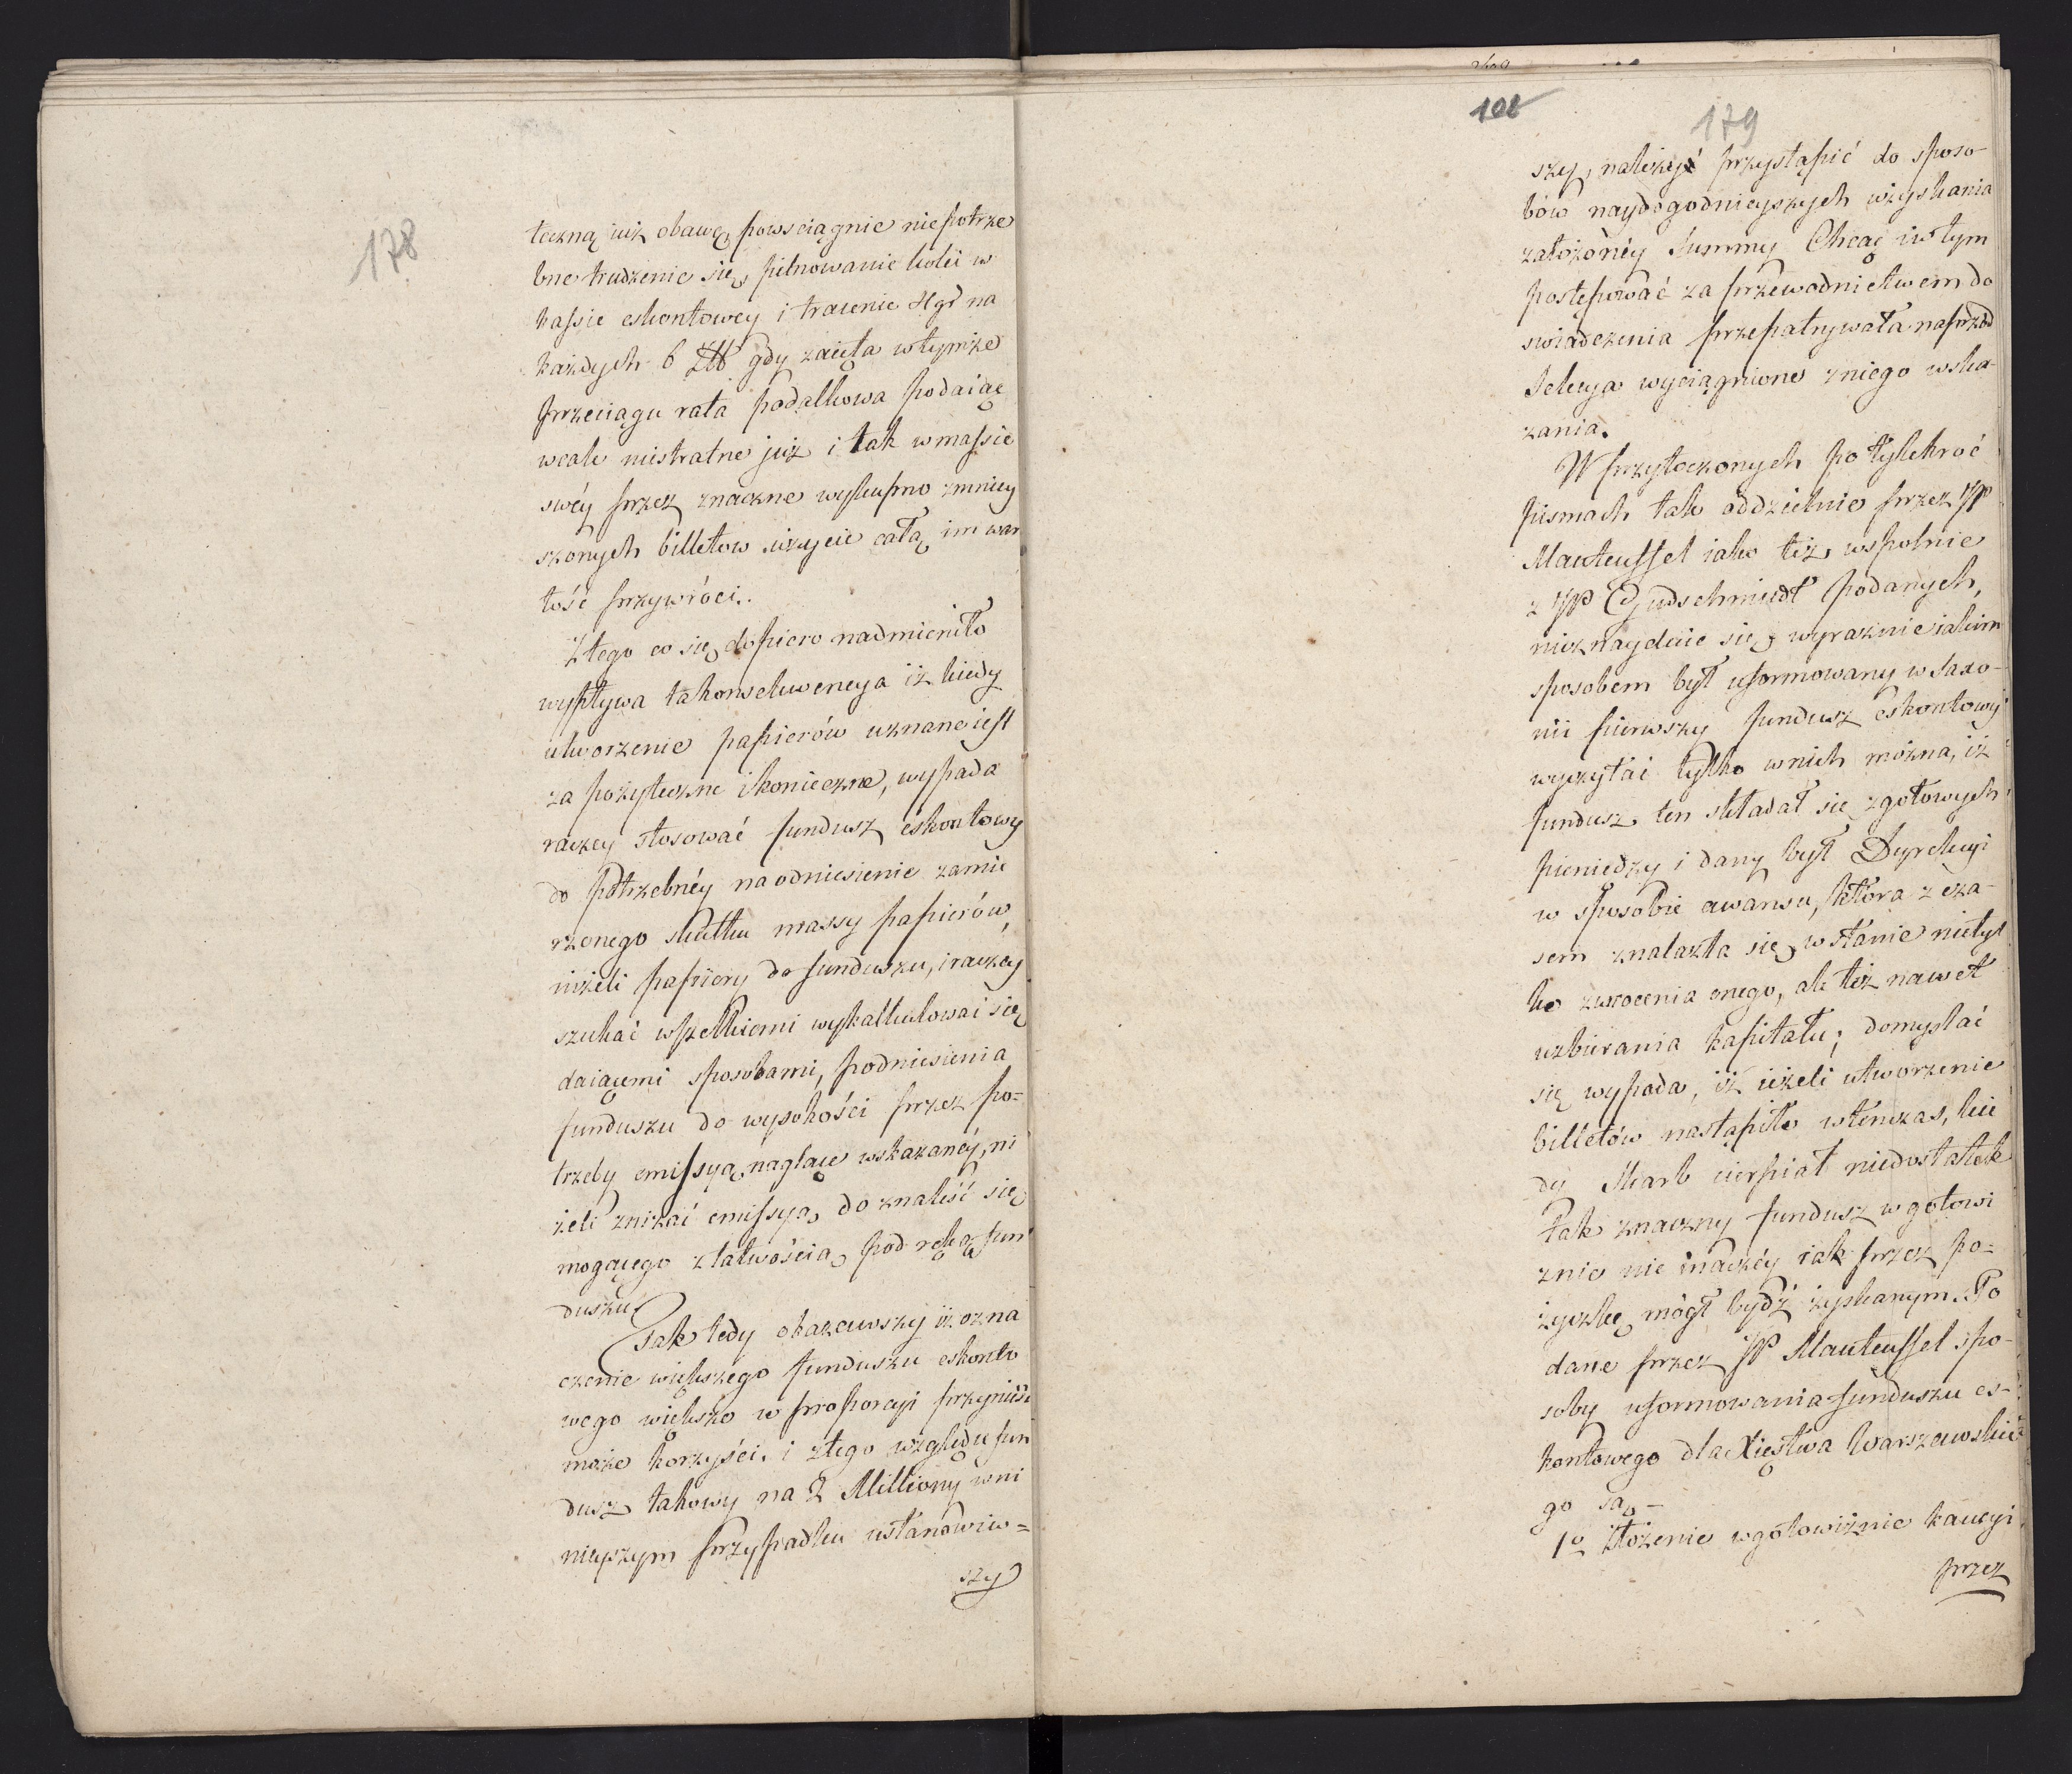 178
teczną już obawę powsciągnie niepotrze
bne trudzenie się, pilnowanie kolei w
kassie eskontowey i tracenie 4gr na
każdych 6 Złł gdy zaięta wtymże
przeciągu rata podatkowa podaiąc
wcale niestratne już i tak wmassie
swéy przez znaczne wykupno zmniey
szonych billetow użycie całą im war
tość przywróci.
Ztego co się dopiero nadmieniło
wypływa ta konsekwencya iż kiedy
utworzenie papierów uznane iest
za pożyteczne i konieczne, wypada
raczey stosować fundusz eskontowy
do potrzebnéy na odniesienie zamie
rzonego skutku massy papierów,
niżeli papiery do funduszu, i raczey
szukać wszelkiemi wykalkulować się
daiącemi sposobami, podniesienia
funduszu do wysokości przez po=
trzeby emissyą naglące wskazanéy, ni
żeli zniżać emissyą do znaleść się
mogącego z łatwością pod ręką fun
duszu
Jak tedy okazawszy iż ozna
czenie większego funduszu eskonto
wego większe w proporcyi przynieść
może korzyści, i ztego względu fun
dusz takowy na 2 Milliony wni
nieyszym przypadku ustanowiw=
szy
102
179
szy, należy przystąpić do sposo-
bów naydogodnieyszych uzyskania
założonéy Summy Chcąc iw tym
postępować za przewodnictwem do
swiadczenia przepatrywała naprzód
Sekcya wyciągnione zniego wska-
zania.
W przytoczonych po tylekroć
pismach tak oddzielnie przez JP
Manteuffel iako też wspolnie
z JP Gudschmidt podanych,
nieznayduie się wyraznie iakim
sposobem był uformowany w Saxo-
nii pierwszy fundusz eskontowy
wyczytać tylko wnich można, iż
fundusz ten składał się zgotowych
pieniędzy i dany był Dyrekcyi
w sposobie awansu, która z cza-
sem znalazła się w stanie nietyl
ko zwrocenia onego, ale też nawet
uzbierania kapitału; domyslać
się wypada, iż ieżeli utworzenie
billetów nastąpiło wtenczas, kie
dy Skarb cierpiał niedostatek
tak znaczny fundusz wgotowi
znie nie inaczéy iak przez po=
życzkę mógł bydź zyskanym. Po
dane przez JP Manteuffel spo-
soby uformowania funduszu es-
kontowego dla Xięstwa Warszawskie
go są –
1o Złożenie wgotowiznie kaucyi
przez